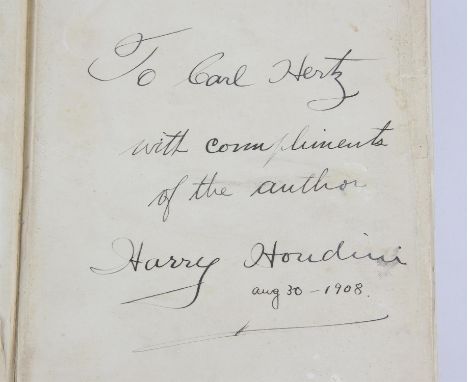 To Carl Hertz
with compliments
of the author
Harry Houdini
aug 30 - 1908.